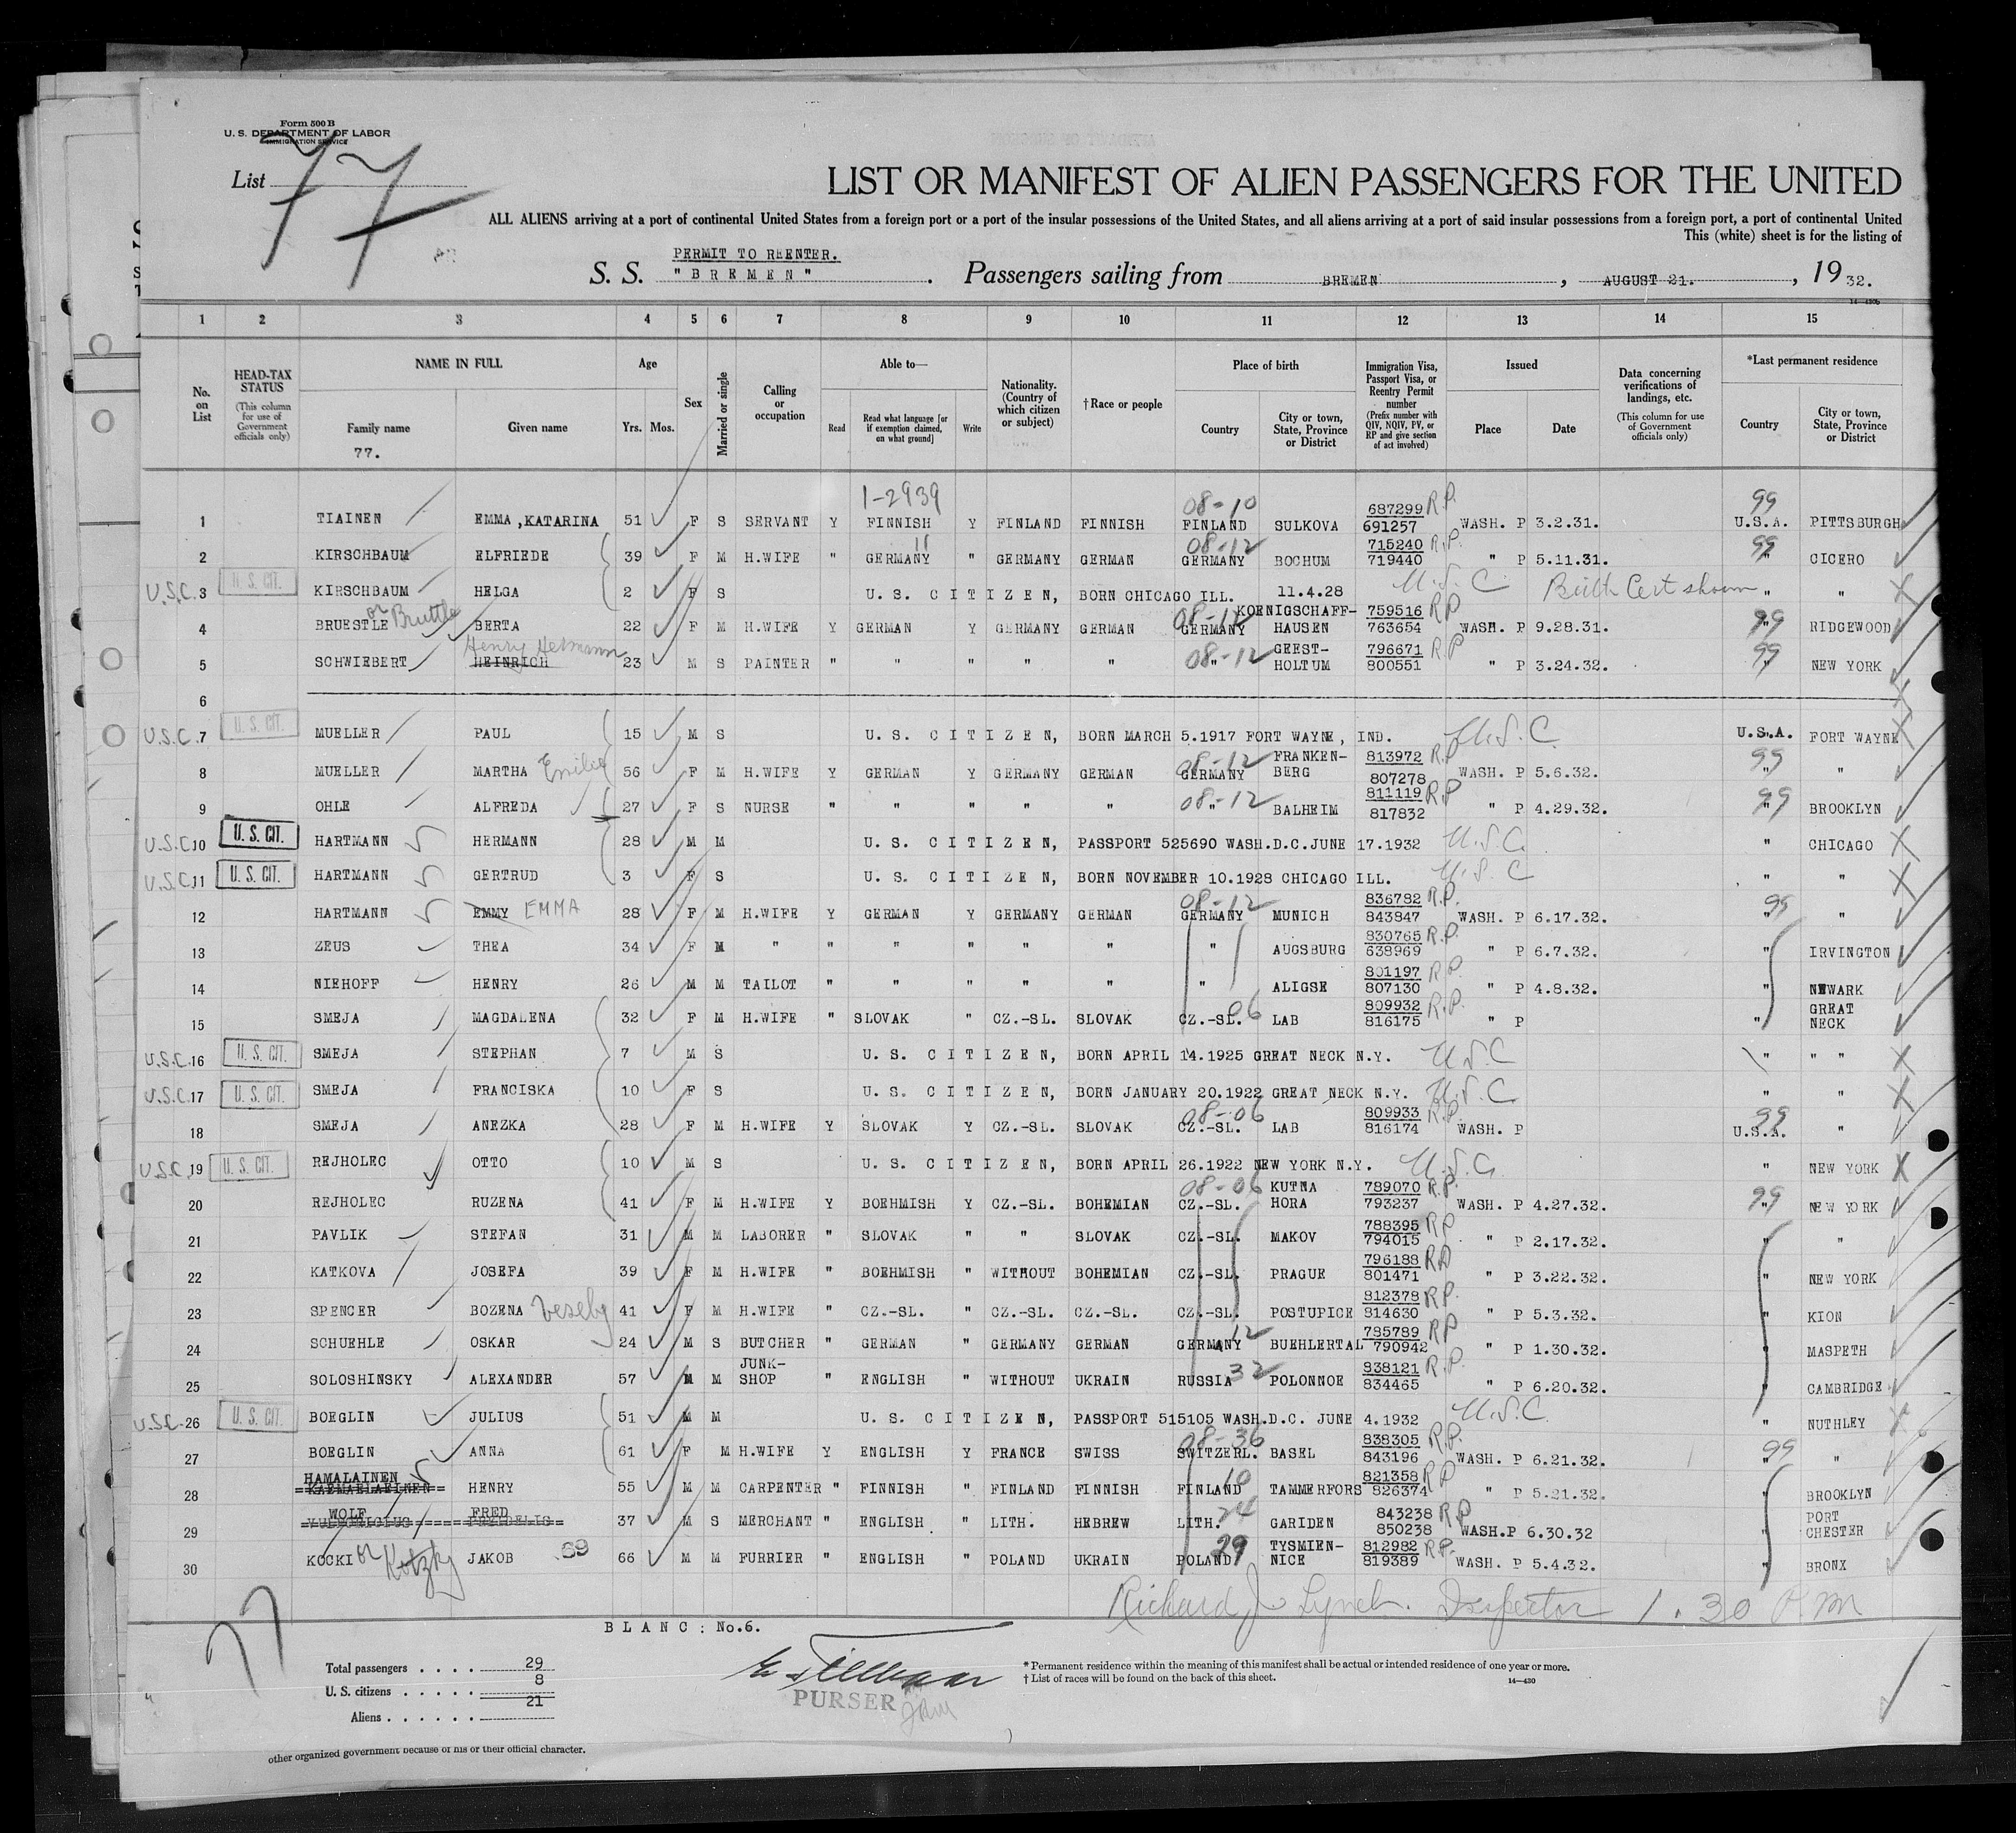 Form 500 B
U. S. DEPARTMENT OF LABOR
IMMIGRATION SERVICE
List 77
LIST OR MANIFEST OF ALIEN PASSENGERS FOR THE UNITED
ALL ALIENS arriving at a port of continental United States from a foreign port or a port of the insular possessions of the United States, and all aliens arriving at a port of said insular possessions from a foreign port, a port of continental United
This (white) sheet is for the listing of
PERMIT TO REENTER.
S. S. "BREMEN". Passengers sailing from BREMEN, AUGUST 21., 1932.
1 2 3 4 5 6 7 8 9 10 11 12 13 14 15
No. on List
HEAD-TAX STATUS (This column for use of Government officials only)
NAME IN FULL Family name Given name
77.
Age Yrs. Mos.
Sex
Married or single
Calling or occupation
Able to— Read Read what language [or if exemption claimed, on what ground] Write
Nationality. (Country of which citizen or subject)
†Race or people
Place of birth Country City or town, State, Province or District
Immigration Visa, Passport Visa, or Reentry Permit number (Prefix number with QIV, NQIV, PV, or RP and give section of act involved)
Issued Place Date
Data concerning verifications of landings, etc. (This column for use of Government officials only)
*Last permanent residence Country City or town, State, Province or District
1-2939 08-10 99
1 TIAINEN EMMA, KATARINA 51 F S SERVANT Y FINNISH Y FINLAND FINNISH FINLAND SULKOVA 687299 691257 R.P. WASH. P 3.2.31. U.S.A. PITTSBURGH
2 KIRSCHBAUM ELFRIEDE 39 F M H.WIFE " GERMANY " GERMANY GERMAN 08-12 GERMANY BOCHUM 715240 719440 R.P. " P 5.11.31. 99 " CICERO
U.S.C. 3 U. S. CIT. KIRSCHBAUM HELGA 2 F S U. S. CITIZEN, BORN CHICAGO ILL. 11.4.28 U.S.C. Birth Cert shown " "
4 BRUESTLE or Bruttle BERTA 22 F M H.WIFE Y GERMAN Y GERMANY GERMAN 08-12 GERMANY KOENIGSCHAFF-HAUSEN 759516 763654 RP WASH. P 9.28.31. 99 " RIDGEWOOD
5 SCHWIEBERT HEINRICH Henry Hermann 23 M S PAINTER " " " " " 08-12 " GEEST-HOLTUM 796671 800551 RP " P 3.24.32. 99 " NEW YORK
6
U.S.C. 7 U. S. CIT. MUELLER PAUL 15 M S U. S. CITIZEN, BORN MARCH 5.1917 FORT WAYNE, IND. U.S.C. U.S.A. FORT WAYNE
8 MUELLER MARTHA Emilie 56 F M H.WIFE Y GERMAN Y GERMANY GERMAN 08-12 GERMANY FRANKEN-BERG 813972 807278 RP WASH. P 5.6.32. 99 " "
9 OHLE ALFREDA 27 F S NURSE " " " " " 08-12 " BALHEIM 811119 817832 RP " P 4.29.32. 99 " BROOKLYN
U.S.C. 10 U. S. CIT. HARTMANN HERMANN 28 M M U. S. CITIZEN, PASSPORT 525690 WASH.D.C.JUNE 17.1932 U.S.C. " CHICAGO
U.S.C. 11 U. S. CIT. HARTMANN GERTRUD 3 F S U. S. CITIZEN, BORN NOVEMBER 10.1928 CHICAGO ILL. U.S.C " "
12 HARTMANN EMMY EMMA 28 F M H.WIFE Y GERMAN Y GERMANY GERMAN 08-12 GERMANY MUNICH 836782 843847 R.P. WASH. P 6.17.32. 99 " "
13 ZEUS THEA 34 F M " " " " " " " AUGSBURG 830765 638969 R.P. " P 6.7.32. " IRVINGTON
14 NIEHOFF HENRY 26 M M TAILOT " " " " " " ALIGSE 801197 807130 R.P. " P 4.8.32. " NEWARK
15 SMEJA MAGDALENA 32 F M H.WIFE " SLOVAK " CZ.-SL. SLOVAK CZ.-SL. 06 LAB 809932 816175 R.P. " P " GREAT NECK
U.S.C. 16 U. S. CIT. SMEJA STEPHAN 7 M S U. S. CITIZEN, BORN APRIL 14.1925 GREAT NECK N.Y. U.S.C " " "
U.S.C. 17 U. S. CIT. SMEJA FRANCISKA 10 F S U. S. CITIZEN, BORN JANUARY 20.1922 GREAT NECK N.Y. U.S.C " "
18 SMEJA ANEZKA 28 F M H.WIFE Y SLOVAK Y CZ.-SL. SLOVAK 08-06 CZ.-SL. LAB 809933 816174 R.P. WASH. P 99 U.S.A. "
U.S.C. 19 U. S. CIT. REJHOLEC OTTO 10 M S U. S. CITIZEN, BORN APRIL 26.1922 NEW YORK N.Y. U.S.C. " NEW YORK
20 REJHOLEC RUZENA 41 F M H.WIFE Y BOEHMISH Y CZ.-SL. BOHEMIAN 08-06 CZ.-SL. KUTNA HORA 789070 793237 R.P. WASH. P 4.27.32. 99 " NEW YORK
21 PAVLIK STEFAN 31 M M LABORER " SLOVAK " " SLOVAK CZ.-SL. MAKOV 788395 794015 RP " P 2.17.32. " "
22 KATKOVA JOSEFA 39 F M H.WIFE " BOEHMISH " WITHOUT BOHEMIAN CZ.-SL. PRAGUE 796188 801471 RP " P 3.22.32. " NEW YORK
23 SPENCER BOZENA Vesely 41 F M H.WIFE " CZ.-SL. " CZ.-SL. CZ.-SL. CZ.-SL. POSTUPICE 812378 814630 RP. " P 5.3.32. " KION
24 SCHUEHLE OSKAR 24 M S BUTCHER " GERMAN " GERMANY GERMAN GERMANY 12 BUEHLERTAL 785789 790942 RP " P 1.30.32. " MASPETH
25 SOLOSHINSKY ALEXANDER 57 M M JUNK-SHOP " ENGLISH " WITHOUT UKRAIN RUSSIA 32 POLONNOE 838121 834465 R.P. " P 6.20.32. " CAMBRIDGE
U.S.C. 26 U. S. CIT. BOEGLIN JULIUS 51 M M U. S. CITIZEN, PASSPORT 515105 WASH.D.C. JUNE 4.1932 U.S.C. " NUTHLEY
27 BOEGLIN ANNA 61 F M H.WIFE Y ENGLISH Y FRANCE SWISS 08-36 SWITZERL. BASEL 838305 843196 R.P. WASH. P 6.21.32. 99 " "
28 HAMALAINEN HENRY 55 M M CARPENTER " FINNISH " FINLAND FINNISH FINLAND 10 TAMMERFORS 821358 826374 RP " P 5.21.32. " BROOKLYN
29 WOLF FRED 37 M S MERCHANT " ENGLISH " LITH. HEBREW LITH. 24 GARIDEN 843238 850238 RP WASH.P 6.30.32 " PORT CHESTER
30 KOCKI or Kotzky JAKOB 69 66 M M FURRIER " ENGLISH " POLAND UKRAIN POLAND 29 TYSMIEN-NICE 812982 819389 R.P. WASH. P 5.4.32. " BRONX
Richard J Lynch. Inspector 1.30 P.M
77
BLANC: No.6.
Total passengers . . . . 29
U. S. citizens . . . . . . 8
Aliens . . . . . . 21
PURSER
* Permanent residence within the meaning of this manifest shall be actual or intended residence of one year or more.
† List of races will be found on the back of this sheet.
14—430
other organized government because of his or their official character.